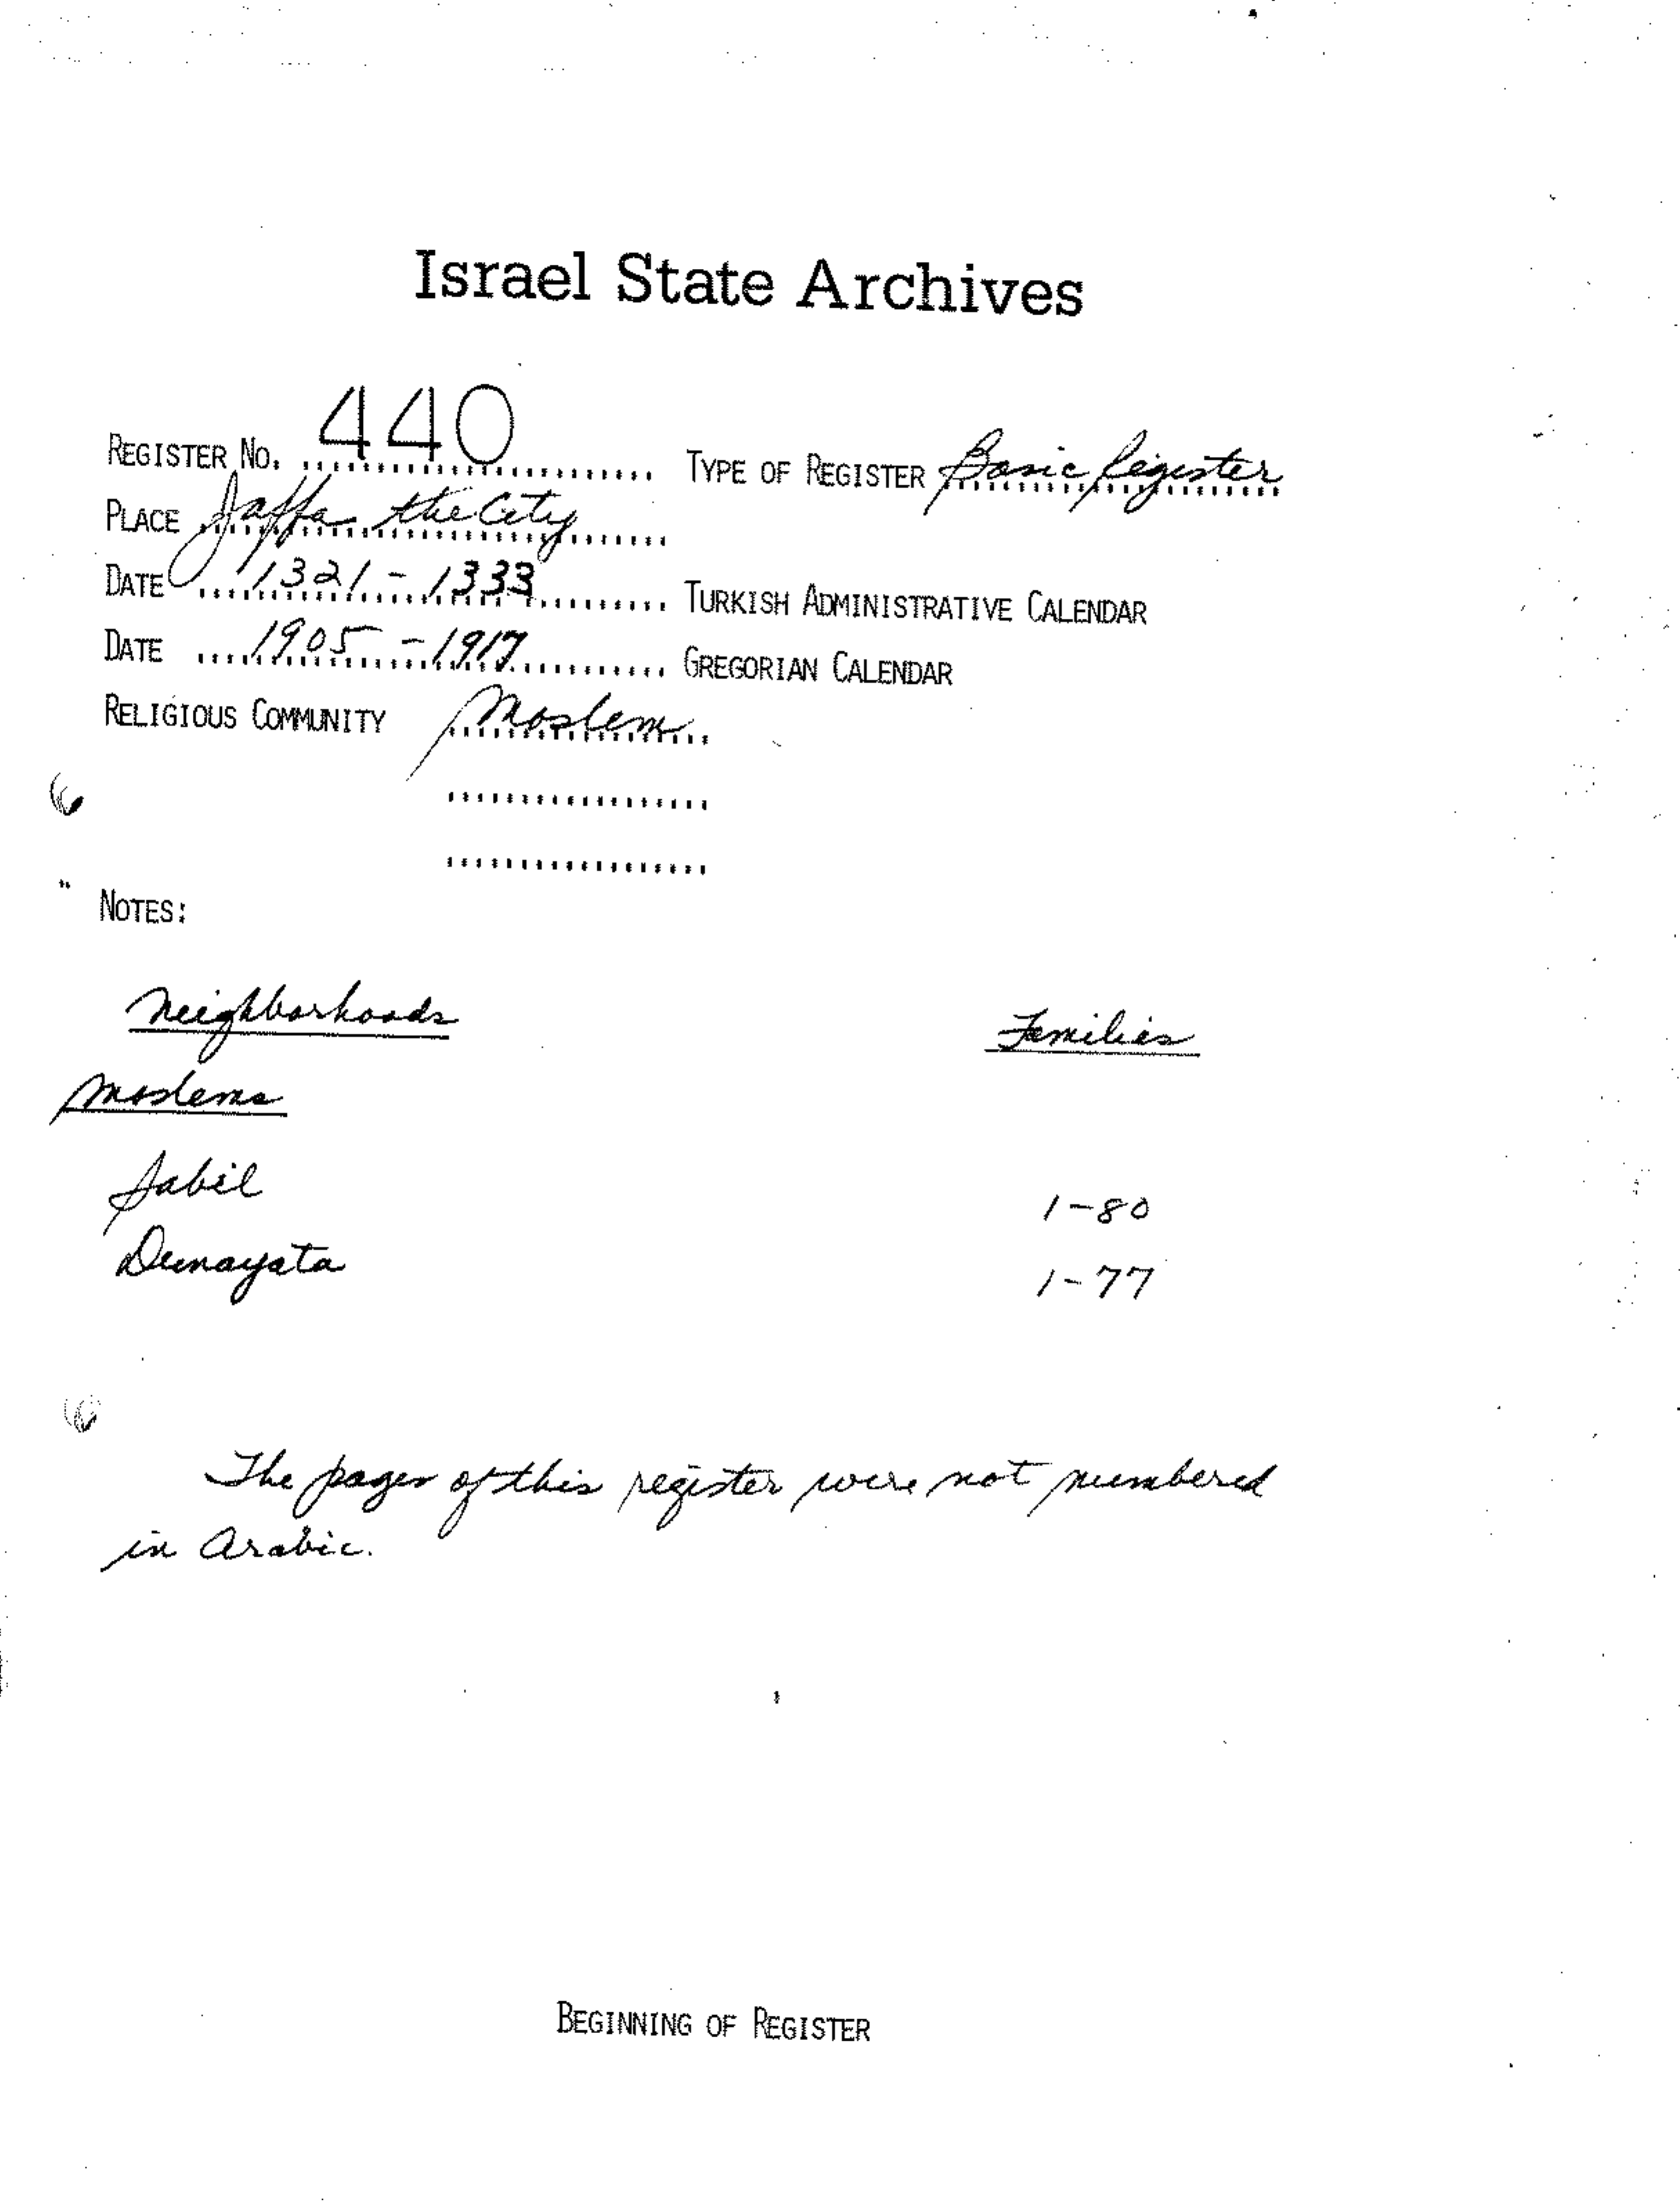 Israel State Archives
REGISTER NO. 440 TYPE OF REGISTER Basic Register
PLACE Jaffa the City
DATE 1321 - 1333 TURKISH ADMINISTRATIVE CALENDAR
DATE 1905 - 1917 GREGORIAN CALENDAR
RELIGIOUS COMMUNITY Moslem
NOTES:
Neighborhoods Families
Moslems
Sabil 1-80
Dumayata 1-77
The pages of this register were not numbered
in Arabic.
BEGINNING OF REGISTER